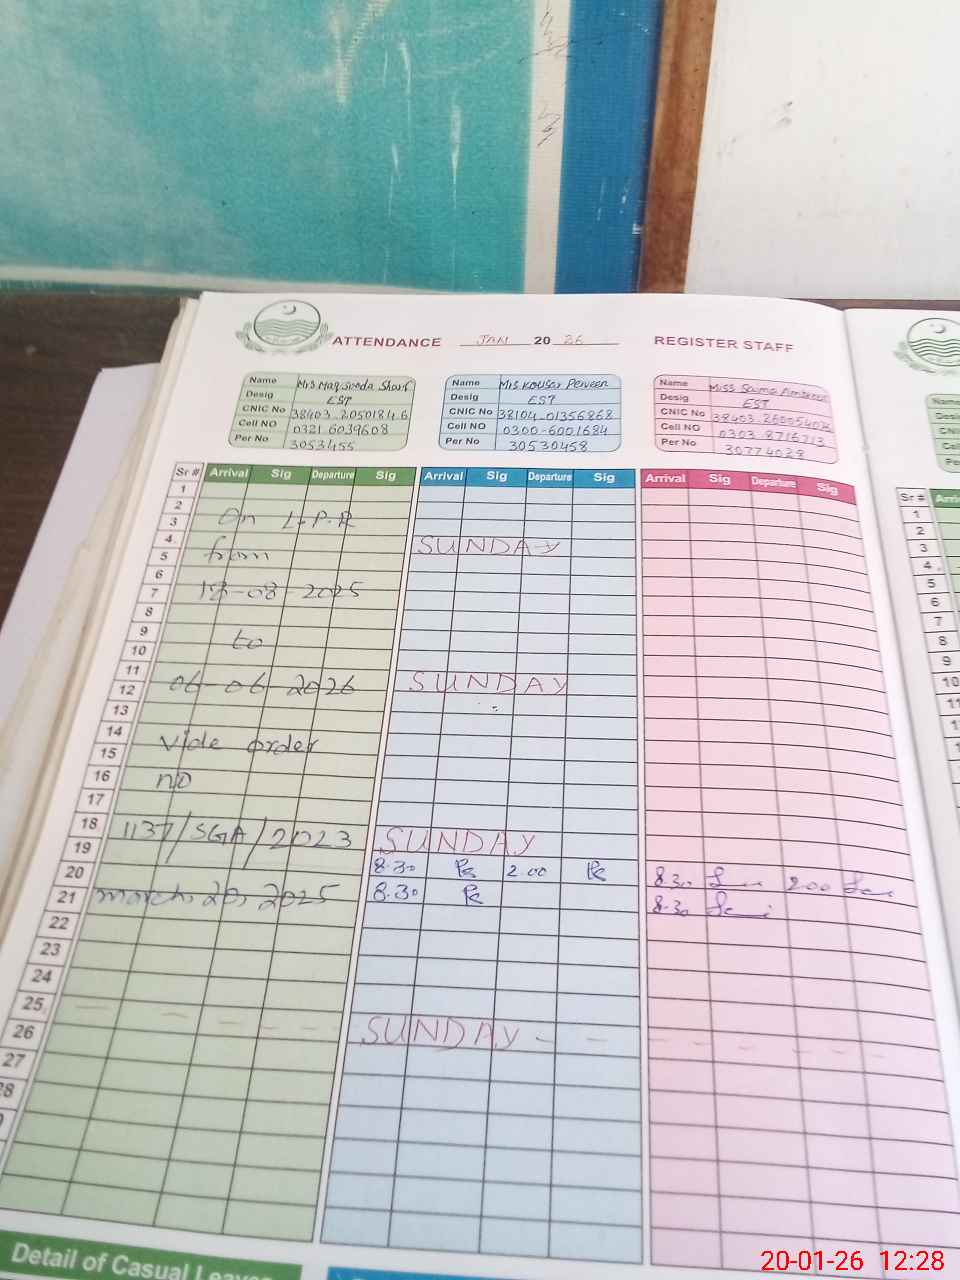 ATTENDANCE JAN 20 26 REGISTER STAFF
Name Mrs Maqsooda Sharif
Desig EST
CNIC No 38403 2050184 6
Cell NO 0321 6039608
Per No 3053455
Name Mrs Kousar Perveen
Desig EST
CNIC No 38104 01356868
Cell NO 0300-6001684
Per No 30530458
Name Miss Saima
Desig EST
CNIC No
Cell NO 0303 8716713
Per No 30774028
Sr # Arrival Sig Departure Sig Arrival Sig Departure Sig Arrival Sig Departure Sig Sr #
1 1
2 2
3 On L.P.R 3
4 SUNDAY 4
5 from 5
6 6
7 18-08-2025 7
8 8
9 to 9
10 10
11 SUNDAY
12 06-06-2026
13
14
15 vide order
16 no
17
18 1137/SGA/2023 SUNDAY
19
20 8.30 2.00 8.30 2.00
21 march, 20, 2025 8.30 8.30
22
23
24
25 SUNDAY
26
27
28
Detail of Casual Leaves
20-01-26 12:28